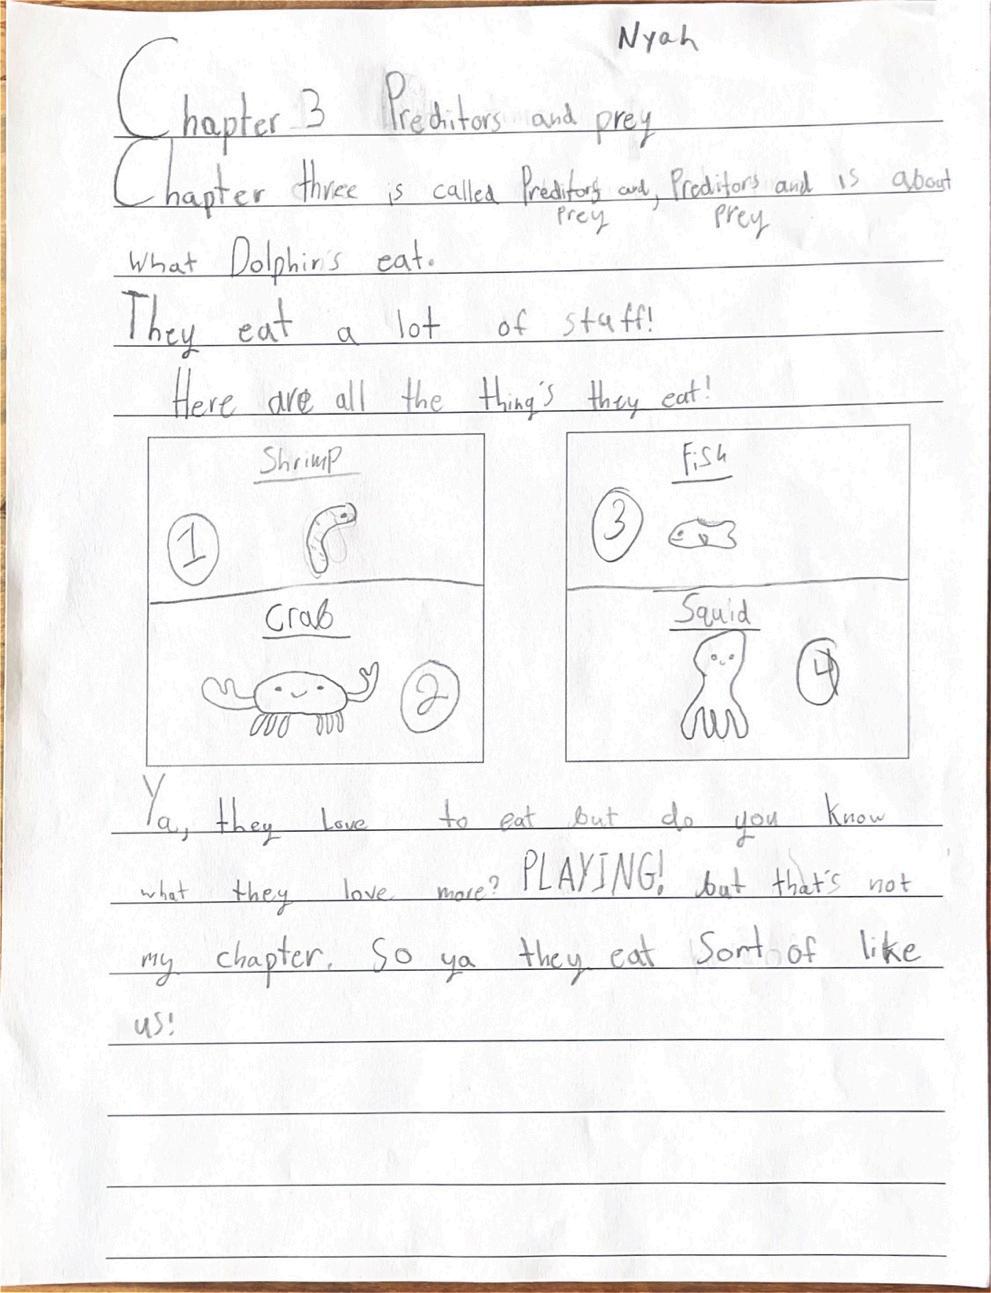 Nyah
Chapter 3 Preditors and prey
Chapter three is called Preditors and, Preditors and is about
prey prey
what Dolphin's eat.
They eat a lot of stuff!
Here are all the thing's they eat!
Shrimp
1
Crab
2
Fish
3
Squid
4
Ya, they Love to eat but do you know
what they love more? PLAYING! but that's not
my chapter. So ya they eat Sort of like
us!